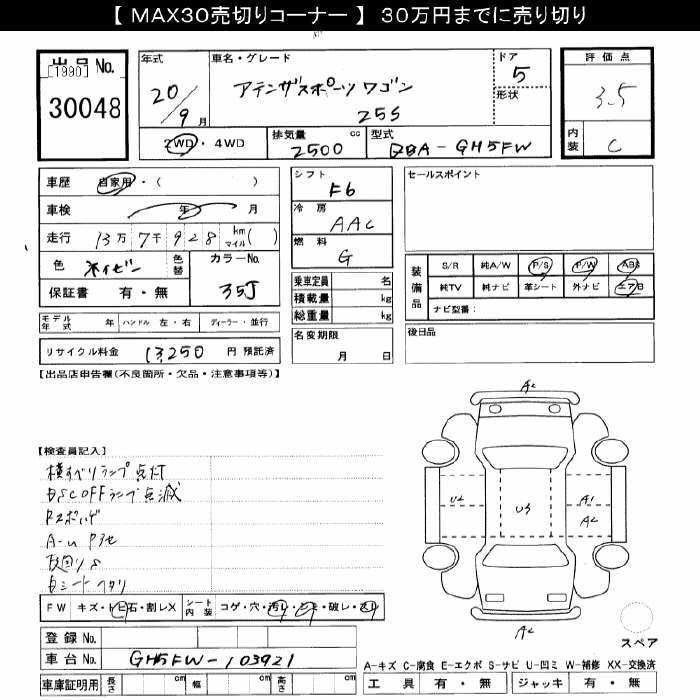 【 MAX30売切りコーナー 】 30万円までに売り切り
出品No.
[1990]
30048
年式 20/9月
車名・グレード アテンザスポーツ ワゴン 25S
ドア 5
形状
評価点 3.5
内装 C
2WD・4WD
排気量 2500 cc
型式 DBA-GH5FW
車歴 自家用・( )
車検 年 月
走行 13万 7千 9 2 8 km マイル ( )
色 ネイビー 色替 カラーNo. 35J
保証書 有・無
シフト F6
冷房 AAC
燃料 G
乗車定員 名
積載量 kg
総重量 kg
名変期限 月 日
セールスポイント
装備品
S/R 純A/W P/S P/W ABS
純TV 純ナビ 革シート 外ナビ エアB
ナビ型番:
後日品
モデル年式 年 ハンドル 左・右 ディーラー・並行
リサイクル料金 13,250 円 預託済
【出品店申告欄(不良箇所・欠品・注意事項等)】
【検査員記入】
横すべりランプ点灯
DSC OFFランプ点滅
A-u P他
シート ヘタリ
A2
U2
U3
A1
A2
A2
FW キズ・トビ石・割レX シート内装 コゲ・穴・汚レ・シミ・破レ・スレ
登録No.
車台No. GH5FW-103921
車庫証明用 長さ cm 幅 cm 高さ cm
スペア
A-キズ C-腐食 E-エクボ S-サビ U-凹ミ W-補修 XX-交換済
工具 有・無 ジャッキ 有・無